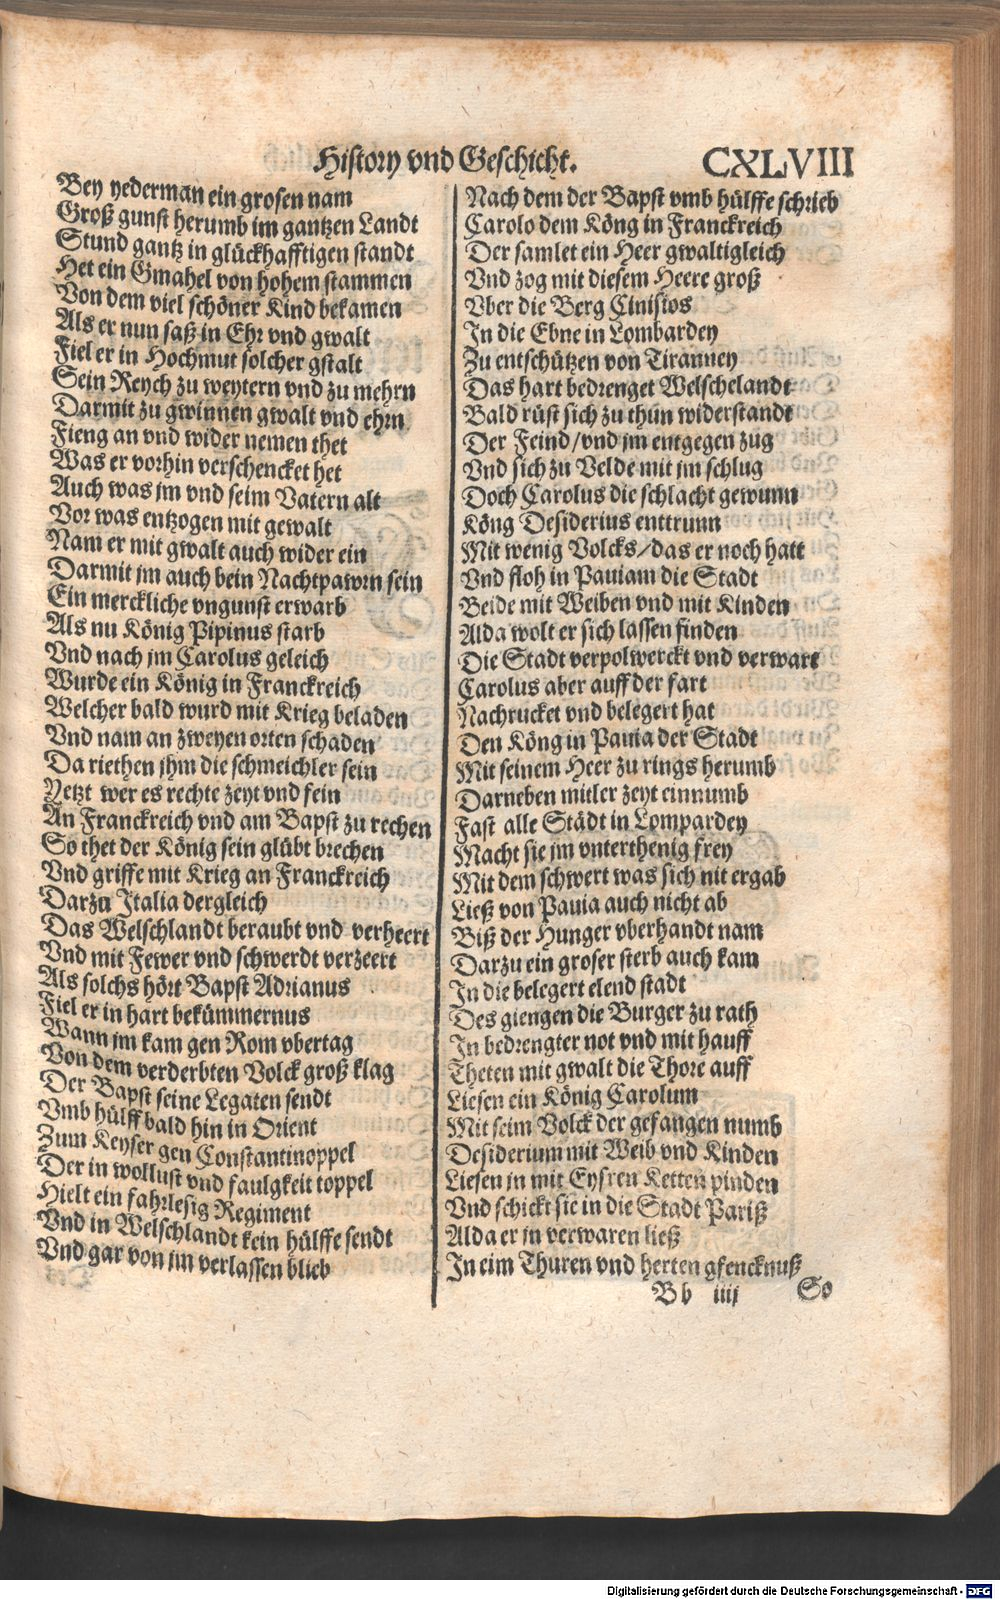 History vnd Geschicht.
CXLVIII
Bey yederman ein grosen nam
Groß gunst herumb im gantzen Landt
Stund gantz in glückhafftigen standt
Het ein Gmahel von hohem stammen
Von dem viel schöner Kind bekamen
Als er nun saß in Ehr vnd gwalt
Fiel er in Hochmut solcher gstalt
Sein Reych zu weytern vnd zu mehrn
Darmit zu gwinnen gwalt vnd ehrn
Fieng an vnd wider nemen thet
Was er vorhin verschencket het
Auch was jm vnd seim Vatern alt
Vor was entzogen mit gewalt
Nam er mit gwalt auch wider ein
Darmit jm auch bein Nachtpawrn sein
Ein merckliche vngunst erwarb
Als nu König Pipinus starb
Vnd nach jm Carolus geleich
Wurde ein König in Franckreich
Welcher bald wurd mit Krieg beladen
Vnd nam an zweyen orten schaden
Da riethen jhm die schmeichler sein
Yetzt wer es rechte zeyt vnd fein
An Franckreich vnd am Bapst zu rechen
So thet der König sein glübt brechen
Vnd griffe mit Krieg an Franckreich
Darzu Italia dergleich
Das Welschlandt beraubt vnd verheert
Vnd mit Fewer vnd schwerdt verzeert
Als solchs hört Bapst Adrianus
Fiel er in hart bekümmernus
Wann jm kam gen Rom vbertag
Von dem verderbten Volck groß klag
Der Bapst seine Legaten sendt
Vmb hülff bald hin in Orient
Zum Keyser gen Constantinoppel
Der in wollust vnd faulgkeit toppel
Hielt ein fahrlesig Regiment
Vnd in Welschlandt kein hülffe sendt
Vnd gar von jm verlassen blieb
Nach dem der Bapst vmb hülffe schrieb
Carolo dem Köng in Franckreich
Der samlet ein Heer gwaltigleich
Vnd zog mit diesem Heere groß
Vber die Berg Cinisios
In die Ebne in Lombardey
Zu entschützen von Tiranney
Das hart bedrenget Welschelandt
Bald rüst sich zu thun widerstandt
Der Feind / vnd jm entgegen zug
Vnd sich zu Velde mit jm schlug
Doch Carolus die schlacht gewunn
Köng Desiderius enttrunn
Mit wenig Volcks / das er noch hatt
Vnd floh in Pauiam die Stadt
Beide mit Weiben vnd mit Kinden
Alda wolt er sich lassen finden
Die Stadt verpolwerckt vnd verwart
Carolus aber auff der fart
Nachrucket vnd belegert hat
Den Köng in Pauia der Stadt
Mit seinem Heer zu rings herumb
Darneben mitler zeyt einnumb
Fast alle Städt in Lompardey
Macht sie jm vnterthenig frey
Mit dem schwert was sich nit ergab
Ließ von Pauia auch nicht ab
Biß der Hunger vberhandt nam
Darzu ein groser sterb auch kam
In die belegert elend stadt
Des giengen die Burger zu rath
In bedrengter not vnd mit hauff
Theten mit gwalt die Thore auff
Liesen ein König Carolum
Mit seim Volck der gefangen numb
Desiderium mit Weib vnd Kinden
Liesen jn mit Eysren Ketten pinden
Vnd schickt sie in die Stadt Pariß
Alda er jn verwaren ließ
In eim Thuren vnd herten gfencknuß
Bb iiij
So
Digitalisierung gefördert durch die Deutsche Forschungsgemeinschaft - DFG